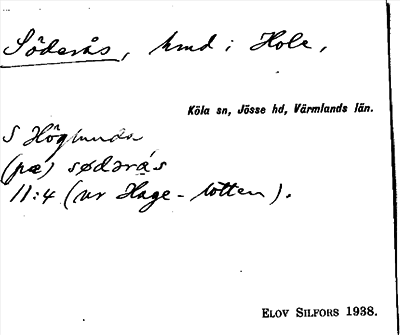 Söderås, hmd i Hole,
Köla sn, Jösse hd, Värmlands län.
S Höglunda
(pæ) sødərås
11:4 (ur Hage-lotten).
ELOV SILFORS 1938.